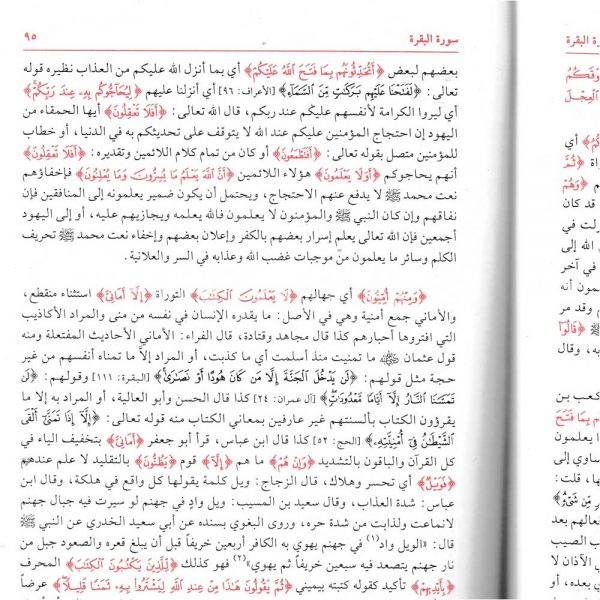 سورة البقرة
٩٥
بعضهم لبعض ﴿أَتُحَدِّثُونَهُم بِمَا فَتَحَ اللَّهُ عَلَيْكُمْ﴾ أي بما أنزل الله عليكم من العذاب نظيره قوله
تعالى: ﴿لَفَتَحْنَا عَلَيْهِم بَرَكَاتٍ مِّنَ السَّمَاءِ﴾ [الأعراف: ٩٦] أي أنزلنا عليهم ﴿لِيُحَاجُّوكُم بِهِ عِندَ رَبِّكُمْ﴾
أي ليروا الكرامة لأنفسهم عليكم عند ربكم، قال الله تعالى: ﴿أَفَلَا تَعْقِلُونَ﴾ أيها الحمقاء من
اليهود إن احتجاج المؤمنين عليكم عند الله لا يتوقف على تحديثكم به في الدنيا، أو خطاب
للمؤمنين متصل بقوله تعالى: ﴿أَفَتَطْمَعُونَ﴾ أو كان من تمام كلام اللائمين وتقديره: ﴿أَفَلَا تَعْقِلُونَ﴾
أنهم يحاجوكم ﴿أَوَلَا يَعْلَمُونَ﴾ هؤلاء اللائمين ﴿أَنَّ اللَّهَ يَعْلَمُ مَا يُسِرُّونَ وَمَا يُعْلِنُونَ﴾ فإخفاؤهم
نعت محمد ﷺ لا يدفع عنهم الاحتجاج، ويحتمل أن يكون ضمير يعلمونه إلى المنافقين فإن
نفاقهم وإن كان النبي ﷺ والمؤمنون لا يعلمون فالله يعلمه ويجازيهم عليه، أو إلى اليهود
أجمعين فإن الله تعالى يعلم إسرار بعضهم بالكفر وإعلان بعضهم وإخفاء نعت محمد ﷺ تحريف
الكلم وسائر ما يعلمون من موجبات غضب الله وعذابه في السر والعلانية.
﴿وَمِنْهُمْ أُمِّيُّونَ﴾ أي جهالهم ﴿لَا يَعْلَمُونَ الْكِتَابَ﴾ التوراة ﴿إِلَّا أَمَانِيَّ﴾ استثناء منقطع،
والأماني جمع أمنية وهي في الأصل: ما يقدره الإنسان في نفسه من منى والمراد الأكاذيب
التي افتروها أحبارهم كذا قال مجاهد وقتادة، قال الفراء: الأماني الأحاديث المفتعلة ومنه
قول عثمان ما تمنيت منذ أسلمت أي ما كذبت، أو المراد إلا ما تمناه أنفسهم من غير
حجة مثل قولهم: ﴿لَن يَدْخُلَ الْجَنَّةَ إِلَّا مَن كَانَ هُودًا أَوْ نَصَارَىٰ﴾ [البقرة: ١١١] وقولهم: ﴿لَن
تَمَسَّنَا النَّارُ إِلَّا أَيَّامًا مَّعْدُودَاتٍ﴾ [آل عمران: ٢٤] كذا قال الحسن وأبو العالية، أو المراد به إلا ما
يقرؤون الكتاب بألسنتهم غير عارفين بمعاني الكتاب منه قوله تعالى: ﴿إِلَّا إِذَا تَمَنَّىٰ أَلْقَى
الشَّيْطَانُ فِي أُمْنِيَّتِهِ﴾ [الحج: ٥٢] كذا قال ابن عباس، قرأ أبو جعفر ﴿أَمَانِيَ﴾ بتخفيف الياء في
كل القرآن والباقون بالتشديد ﴿وَإِنْ هُمْ﴾ ما هم ﴿إِلَّا﴾ قوم ﴿يَظُنُّونَ﴾ بالتقليد لا علم عندهم
﴿فَوَيْلٌ﴾ أي تحسر وهلاك، قال الزجاج: ويل كلمة يقولها كل واقع في هلكة، وقال ابن
عباس: شدة العذاب، وقال سعيد بن المسيب: ويل وادٍ في جهنم لو سيرت فيه جبال جهنم
لانماعت ولذابت من شدة حره، وروى البغوي بسنده عن أبي سعيد الخدري عن النبي ﷺ
قال: «الويل واد(١) في جهنم يهوي به الكافر أربعين خريفاً قبل أن يبلغ قعره والصعود جبل من
نار جهنم يتصعد فيه سبعين خريفاً ثم يهوي»(٢) فهو كذلك ﴿لِّلَّذِينَ يَكْتُبُونَ الْكِتَابَ﴾ المحرف
﴿بِأَيْدِيهِمْ﴾ تأكيد كقوله كتبته بيميني ﴿ثُمَّ يَقُولُونَ هَٰذَا مِنْ عِندِ اللَّهِ لِيَشْتَرُوا بِهِ ثَمَنًا قَلِيلًا﴾ عرضاً